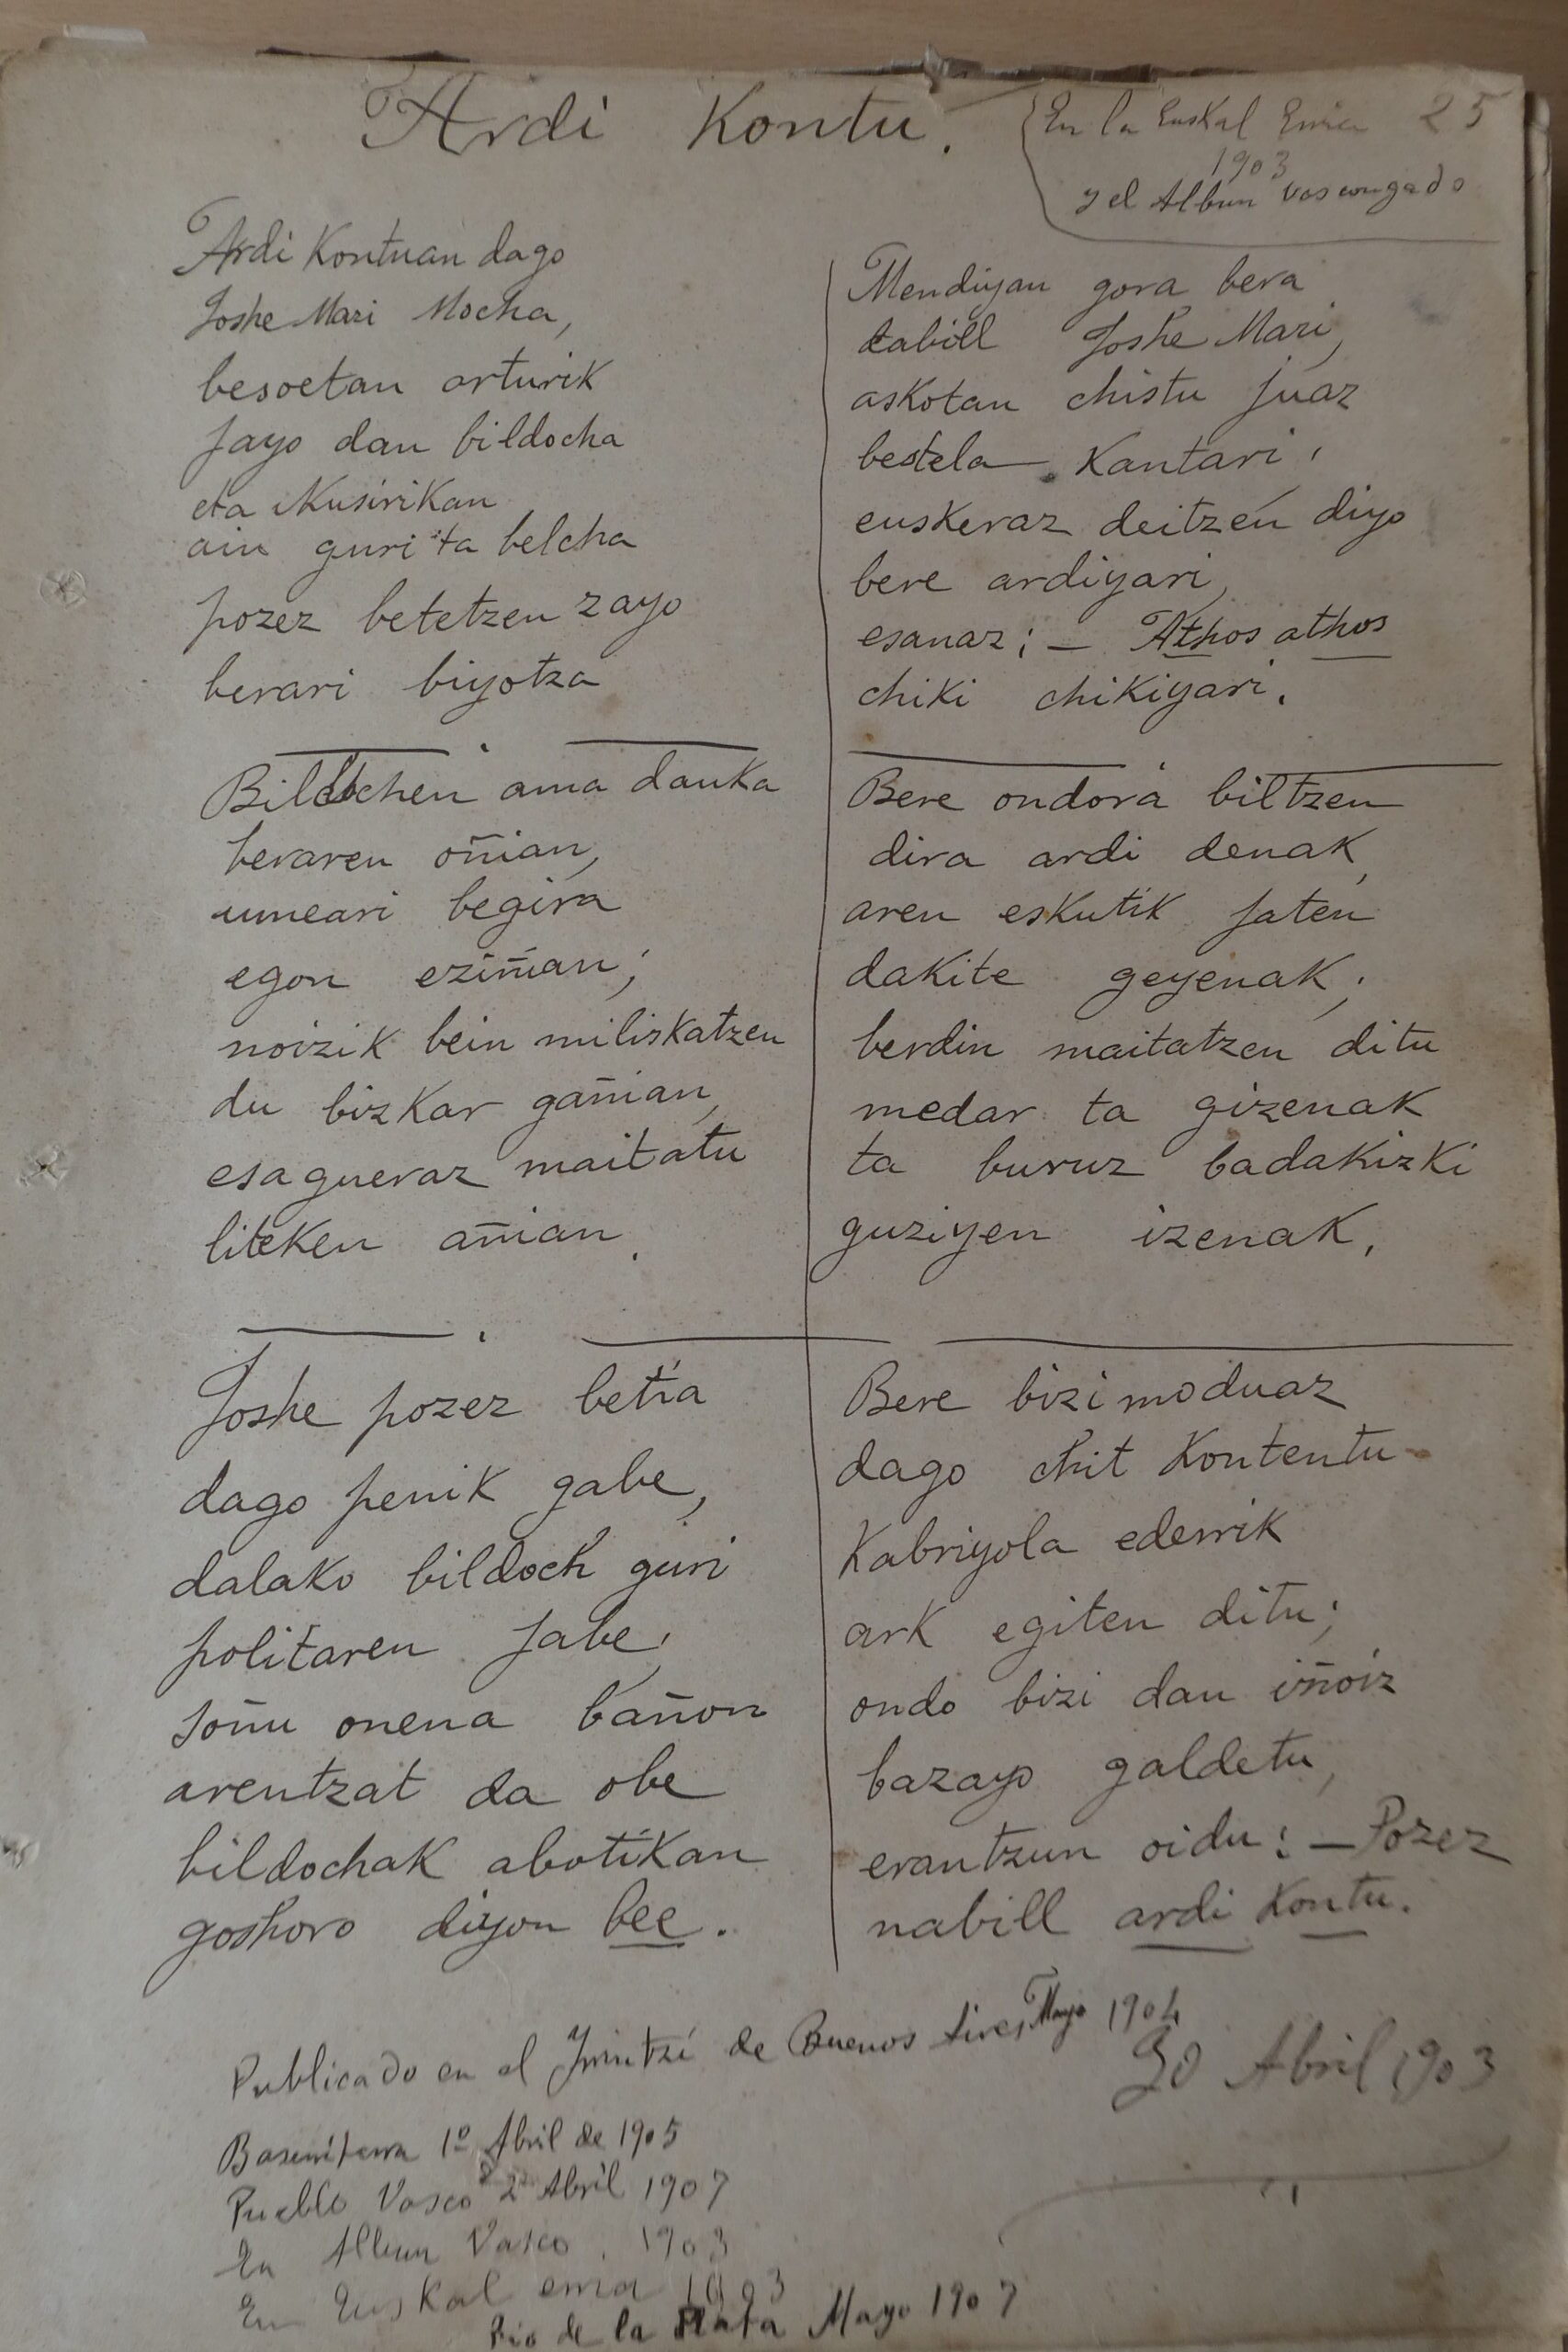 Ardi Kontu.
En la Euskal Erria 25
1903
y el Album vascongado
Ardi Kontuan dago
Joshe Mari Mocha,
besoetan arturik
jayo dan bildocha
eta ikusirikan
ain guri ta belcha
pozez betetzen zayo
berari biyotza
Bildochen ama dauka
beraren oñian,
umeari begira
egon eziñian;
noizik bein miliskatzen
du bizkar gañian,
esagueraz maitatu
liteken añian.
Joshe pozez betia
dago penik gabe,
dalako bildoch guri
politaren jabe,
soñu onena bañon
arentzat da obe
bildochak abotikan
goshoro diyon bee.
Mendiyan gora bera
tabill Joshe Mari,
askotan chistu juaz
bestela kantari,
euskeraz deitzen diyo
bere ardiyari,
esanaz; - Athos athos
chiki chikiyari.
Bere ondora biltzen
dira ardi denak,
aren eskutik jaten
dakite geyenak;
berdin maitatzen ditu
medar ta gizenak
ta buruz badakizki
guziyen izenak,
Bere bizi moduaz
dago chit kontentu
Kabriyola ederrik
ark egiten ditu;
ondo bizi dan iñoiz
bazayo galdetu,
erantzun oidu: - Pozez
nabill ardi kontu.
Publicado en el Irrintzi de Buenos Aires Mayo 1904
30 Abril 1903
Baserritarra 1º Abril de 1905
Pueblo Vasco 2 Abril 1907
En Album Vasco. 1903
En Euskal erria 1903
Rio de la Plata Mayo 1907